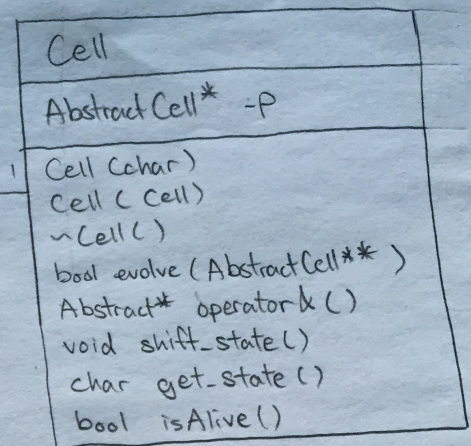 Cell
AbstractCell* -p
1
Cell (char)
Cell (Cell)
~Cell()
bool evolve (AbstractCell**)
Abstract* operator&()
void shift_state()
char get_state()
bool isAlive()